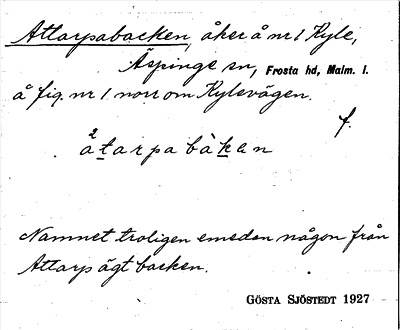 Attarpsabacken, åker å nr 1 Kyle,
Äspinge sn, Frosta hd, Malm. l.
å fig. nr 1 norr om Kylevägen.
f.
2
åtarpabàkan
Namnet troligen emedan någon från
Attarp ägt backen.
GÖSTA SJÖSTEDT 1927